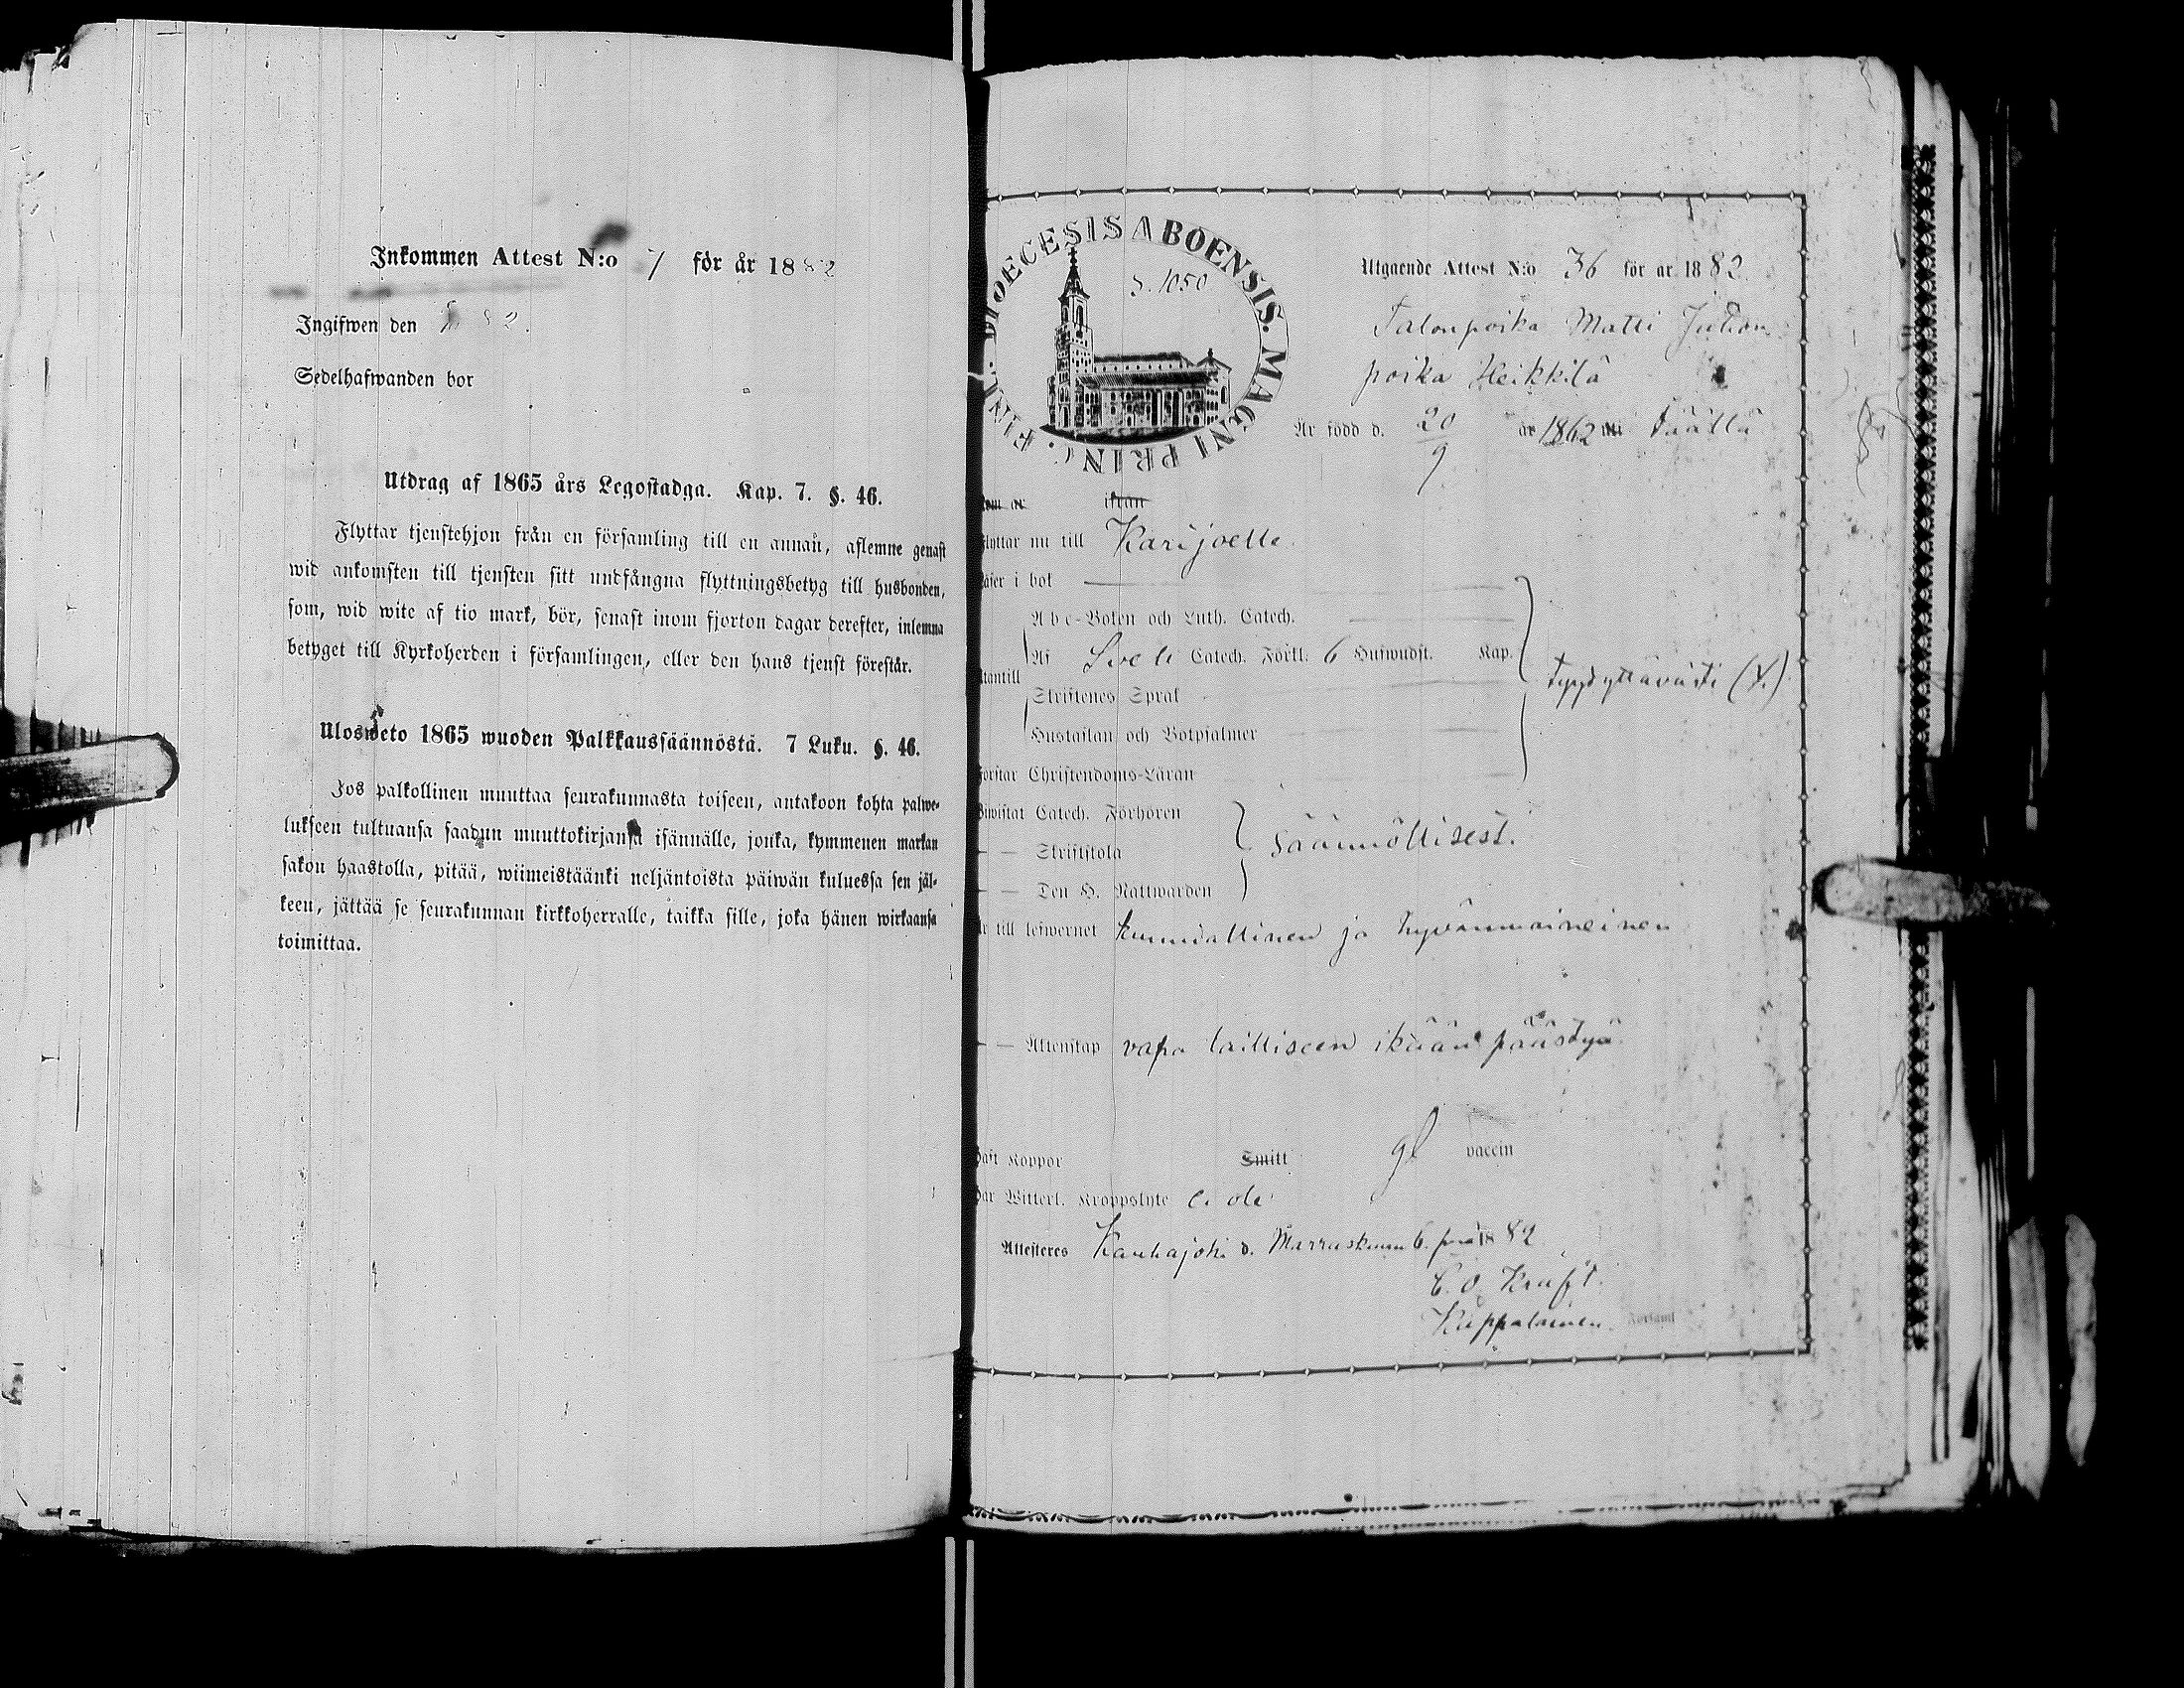 Inkommen Attest N:o 7 för år 1882
Ingifwen den 82.
Sedelhafwanden bor
Utdrag af 1865 års Legostadga. Kap. 7. §. 46.
Flyttar tjenstehjon från en församling till en annan, aflemne genast
wid ankomsten till tjensten sitt undfångna flyttningsbetyg till husbonden,
som, wid wite af tio mark, bör, senast inom fjorton dagar derefter, inlemna
betyget till Kyrkoherden i församlingen, eller den hans tjenst förestår.
Ulosweto 1865 wuoden Palkkaussäännöstä. 7 Luku. §. 46.
Jos palkollinen muuttaa seurakunnasta toiseen, antakoon kohta palwe-
lukseen tultuansa saadun muuttokirjansa isännälle, jonka, kymmenen markan
sakon haastolla, pitää, wiimeistäänki neljäntoista päiwän kuluessa sen jäl-
keen, jättää se seurakunnan kirkkoherralle, taikka sille, joka hänen wirkaansa
toimittaa.
DIOECESIS ABOENSIS. MAGNI PRINC. FINL.
S. 1050
Utgaende Attest N:o 36 för ar 1882
Talonpoika Matti Juhon
poika Heikkilä
Är född d. 20/9 år 1862 täällä
ifrån
Flyttar nu till Karijoelle
Läser i bok
Abc-Boken och Luth. Catech.
Utantill Af Sveb Catech. Förkl. 6 Hufwudst. Kap. tyydyttävästi (t.)
Skriftenes Språk
Hustaflan och Botpsalmer
Förstår Christendoms-Läran
Biwistat Catech. Förhören
— — Skriftskola säännöllisest.
— — Den H. Nattwarden
Är till lefwernet kunniallinen ja hyvänmaineinen
— — Äktenskap vapa lailliseen ikään päästyä
Haft Koppor Smitt vaccin
Har Witterl. Kroppslyte ei ole
Attesteres Kauhajoki d. Marraskuun 6. pnä 1882
C. O. Kraft.
Kappalainen Församl